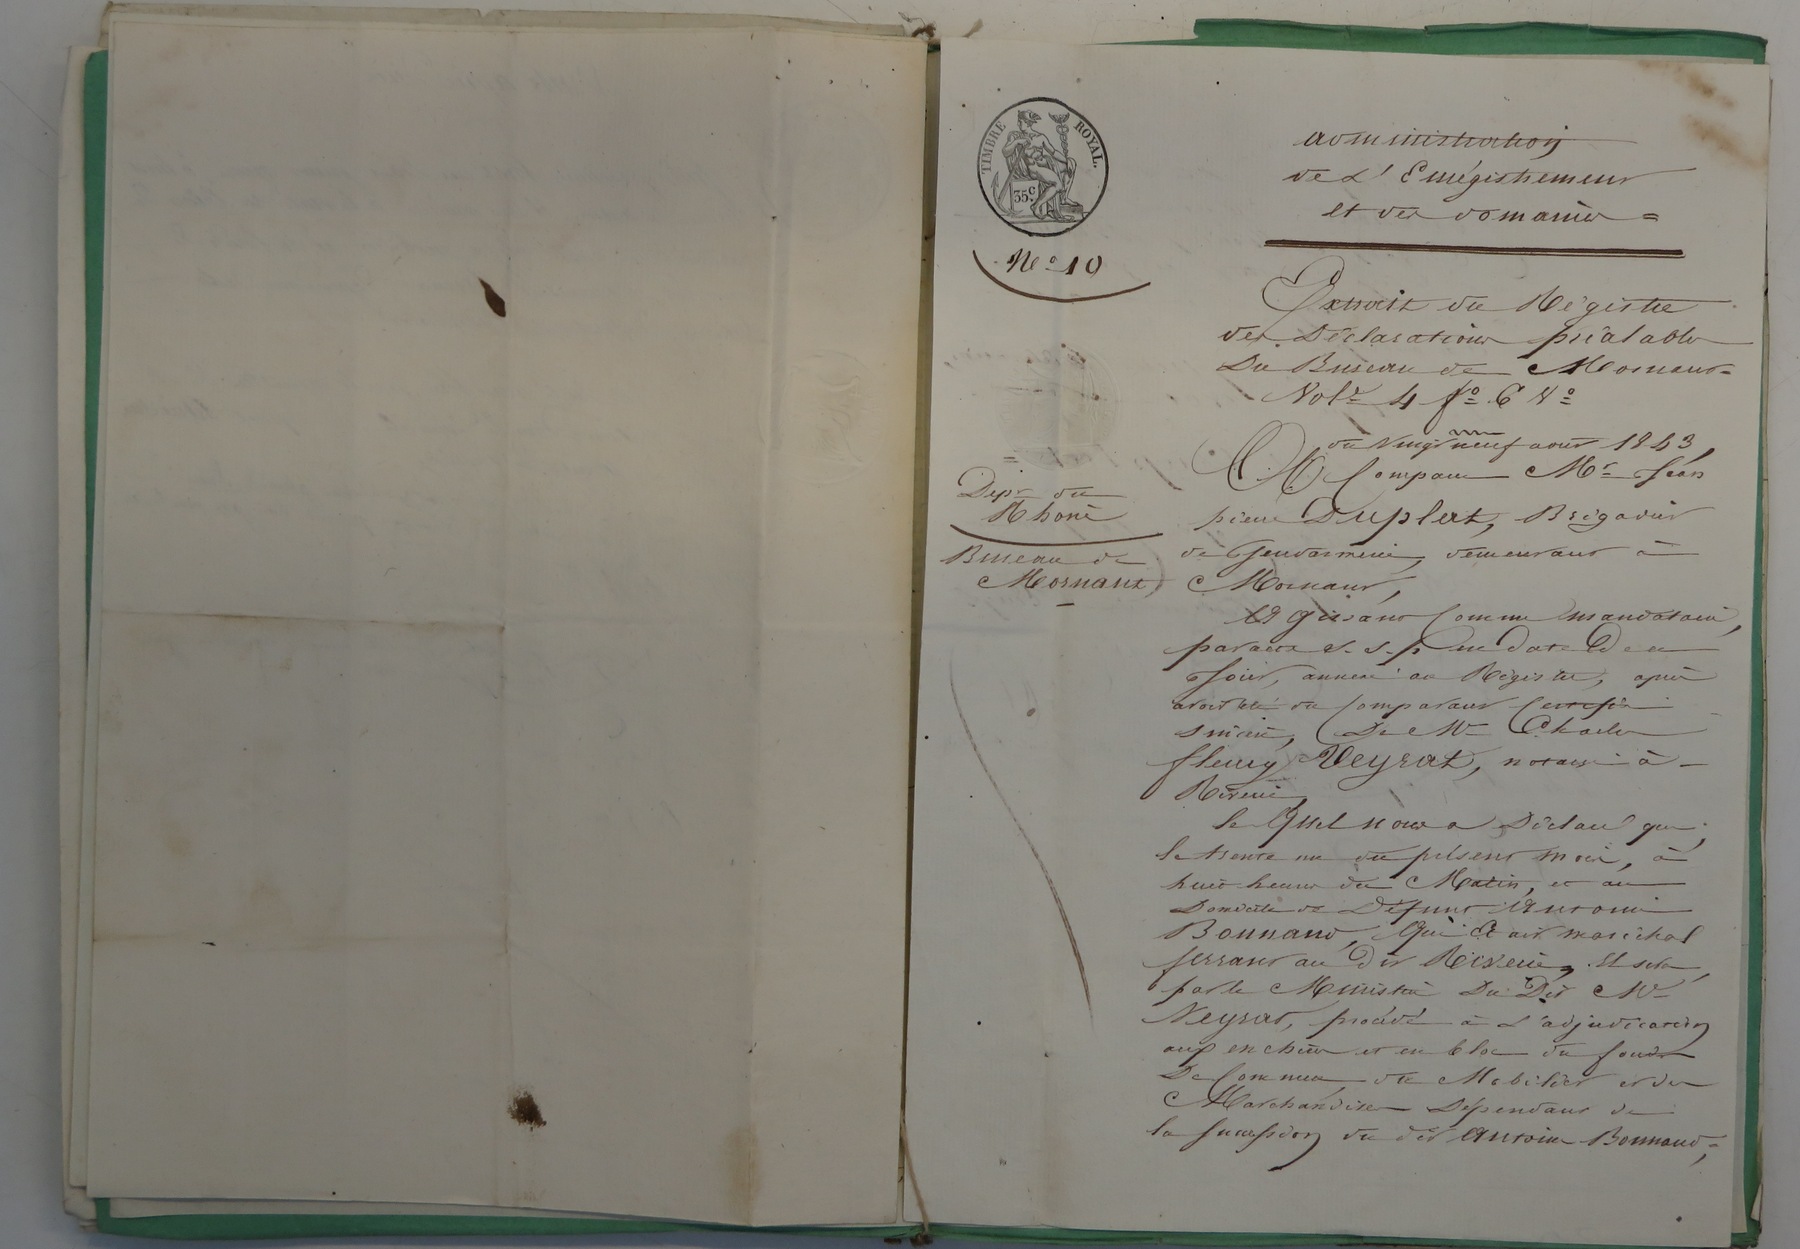 TIMBRE ROYAL.
35 c.
N.° 10
administration
de L'Enrégistrement
et des domaines =
Extrait du Régistre
des Déclarations préalables
Du Bureau de Mornant =
Vol.e 4 f.° 6 V.°
du vingt neuf août 1843,
Comparu Mr. Jean
pierre Duplat, Brigadier
de Gendarmerie, demeurant à
Mornant,
Dép.t du
Rhône
Bureau de
Mornant,
Agissant Comme mandataire,
par acte s. s. p. en date de ce
Jour, annexé au Régistre, après
avoir été du Comparant Certifié
sincère, De Me. Charles
fleury Veyrat, notaire à
Riverie,
le Quel nous a Déclaré que,
le trente un du présent mois, à
huit heures du Matin, et au
Domicile de Défunt Antoine
Bonnand, Qui était maréchal
ferrant au dit Riverie, Il sera,
par le Ministère Du Dit Me.
Veyrat, procédé à L'adjudication
aux enchères et en bloc du fonds
De Commerce, du Mobilier et des
Marchandises Dépendant de
la succession du dit Antoine Bonnand,